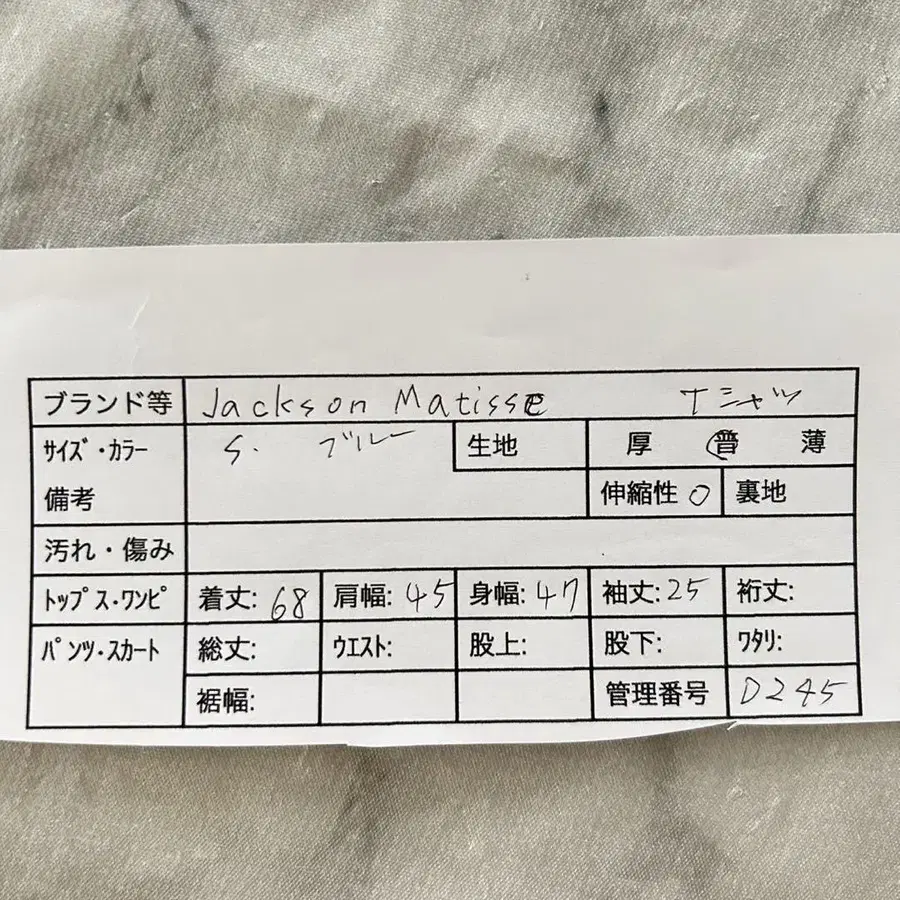 ブランド等 Jackson Matisse Tシャツ
サイズ・カラー S. ブルー 生地 厚 普 薄
備考 伸縮性 ○ 裏地
汚れ・傷み
トップス・ワンピ 着丈: 68 肩幅: 45 身幅: 47 袖丈: 25 裄丈:
パンツ・スカート 総丈: ウエスト: 股上: 股下: ワタリ:
裾幅: 管理番号 D245